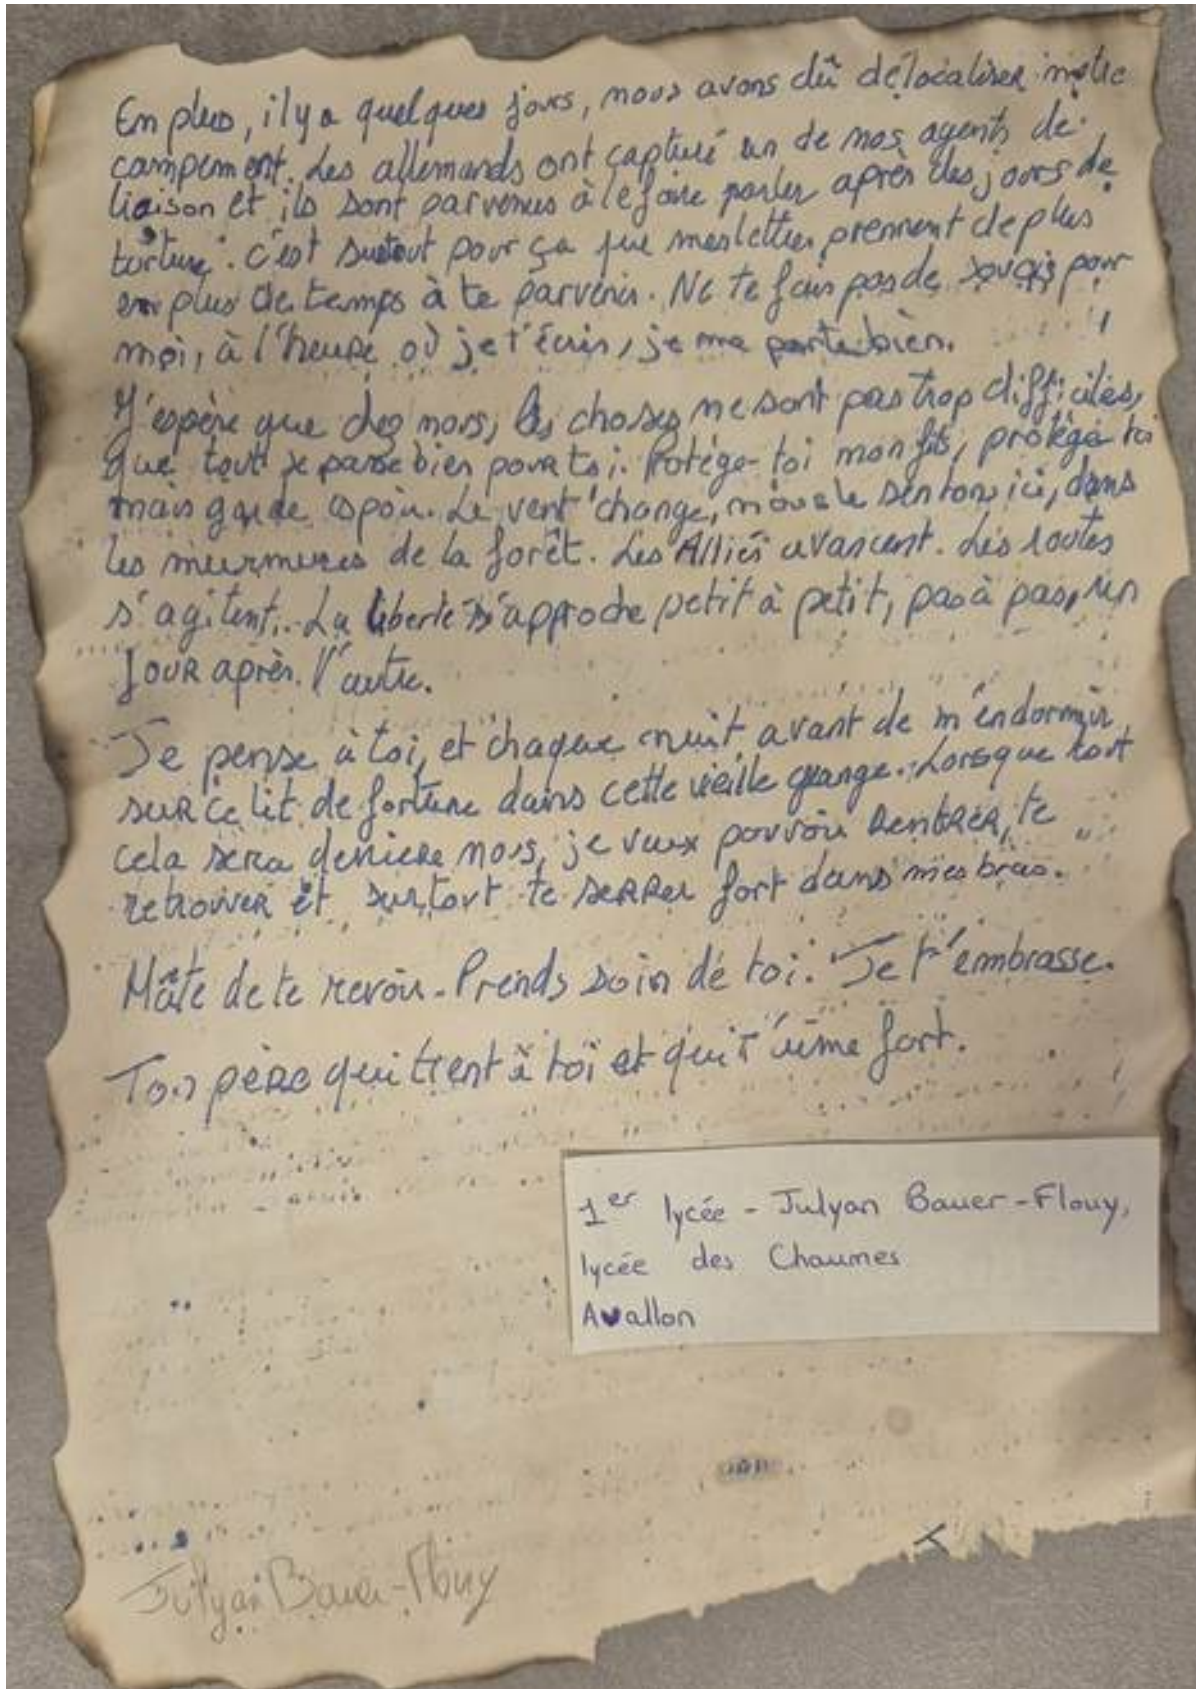 En plus, il y a quelques jours, nous avons dû délocaliser notre
campement. Les allemands ont capturé un de nos agents de
liaison et ils sont parvenus à le faire parler après des jours de
torture. C'est surtout pour ça que mes lettres prennent de plus
en plus de temps à te parvenir. Ne te fais pas de soucis pour
moi, à l'heure où je t'écris, je me porte bien.
J'espère que chez nous, les choses ne sont pas trop difficiles,
que tout se passe bien pour toi. Protège-toi mon fils, protège toi
mais garde espoir. Le vent change, nous le sentons ici, dans
les murmures de la forêt. Les Alliés avancent. Les routes
s'agitent... La liberté s'approche petit à petit, pas à pas, un
jour après l'autre.
Je pense à toi, et chaque nuit avant de m'endormir
sur ce lit de fortune dans cette vieille grange. Lorsque tout
cela sera derrière nous, je veux pouvoir rentrer, te
retrouver et surtout te serrer fort dans mes bras.
Hâte de te revoir. Prends soin de toi. Je t'embrasse.
Ton père qui tient à toi et qui t'aime fort.
1er lycée - Julyan Bauer-Flouy,
lycée des Chaumes
Avallon
Julyan Bauer-Flouy